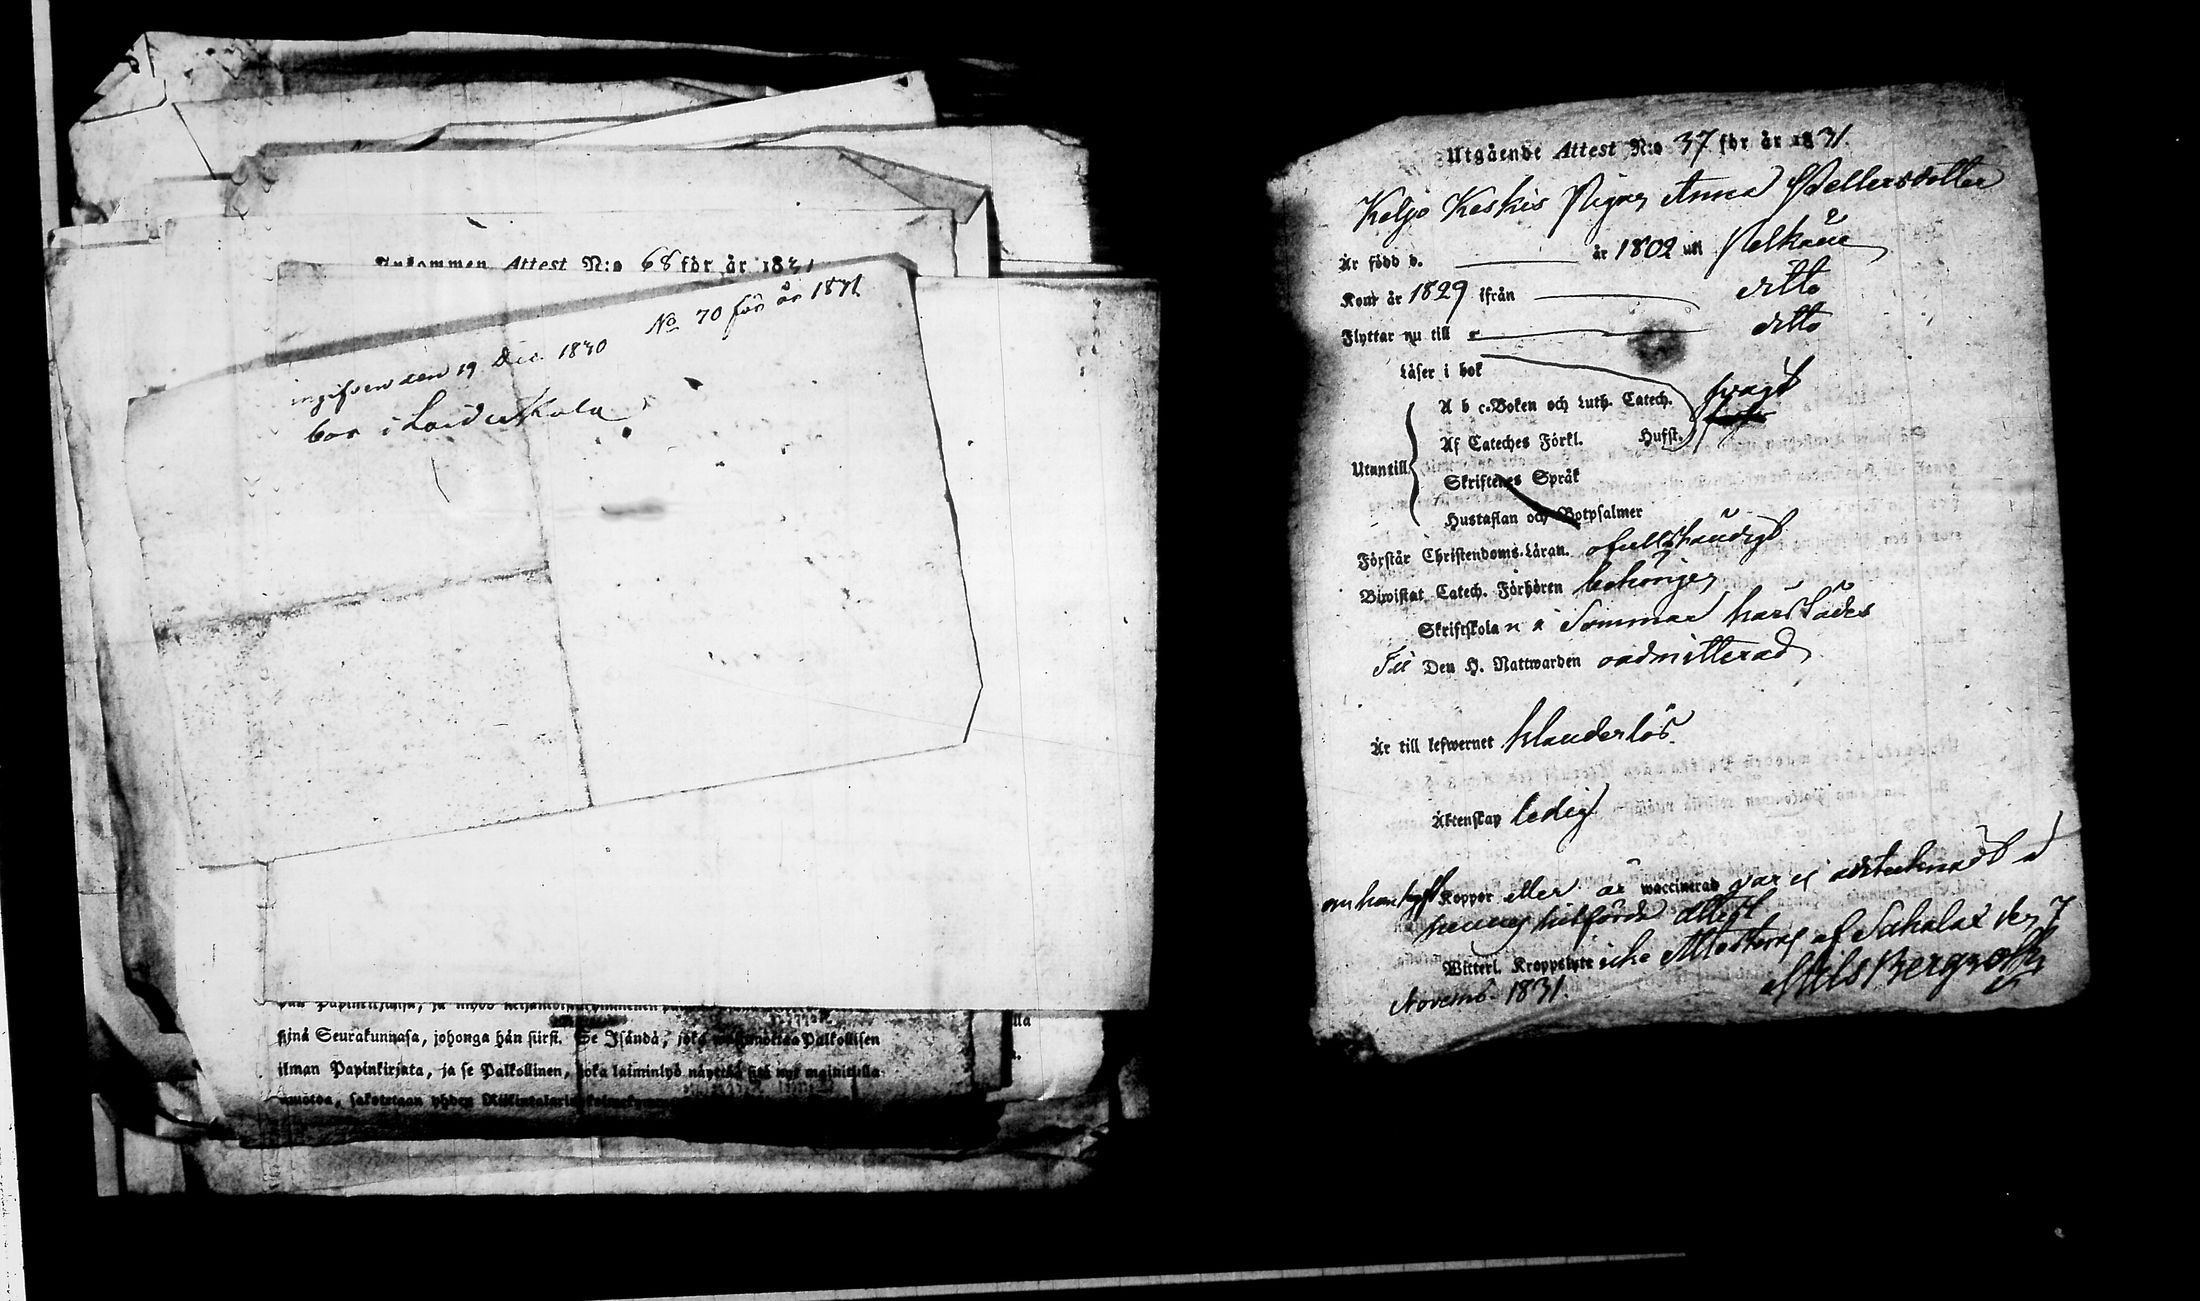 Ankommen Attest N:o 68 för år 1831
No 70 för år 1831
ingifven den 19 Dec. 1830
bor i Laiduskala
sinä Seurakunnasa, johonga hän siirst. Se Isändä, joka Palkollisen
ilman Papinkirjata, ja se Palkollinen, joka laiminlyö näyttää sitä nyt mainitulla
muotoa, sakotetaan yhden
lla
Utgående Attest N:o 37 för år 1831.
Keljo Keskis Pigan Anna Hellersdotter
Är född d. år 1802 uti Pelkäne
Kom år 1829 ifrån ditto
Flyttar nu till ditto
Läser i bok
A b c-Boken och Luth. Catech. svagt
Af Cateches Förkl. Husst.
Utantill
Skriftenes Språk
Hustaflan och Botpsalmer
Förstår Christendoms-Läran. ofullständigt
Biwistat Catech. Förhören behörigen
Skriftskola n i Sommar härstädes
Till Den H. Nattwarden oadmitterad
Är till lefwernet klanderlös.
Äktenskap ledig
om hon haft Koppor eller är waccinerad var ej antecknadt i
hennes hitförde attest
Witterl. Kroppslyte icke Attesteras af Sahalax den 7
Novemb. 1831. Nils Bergroth